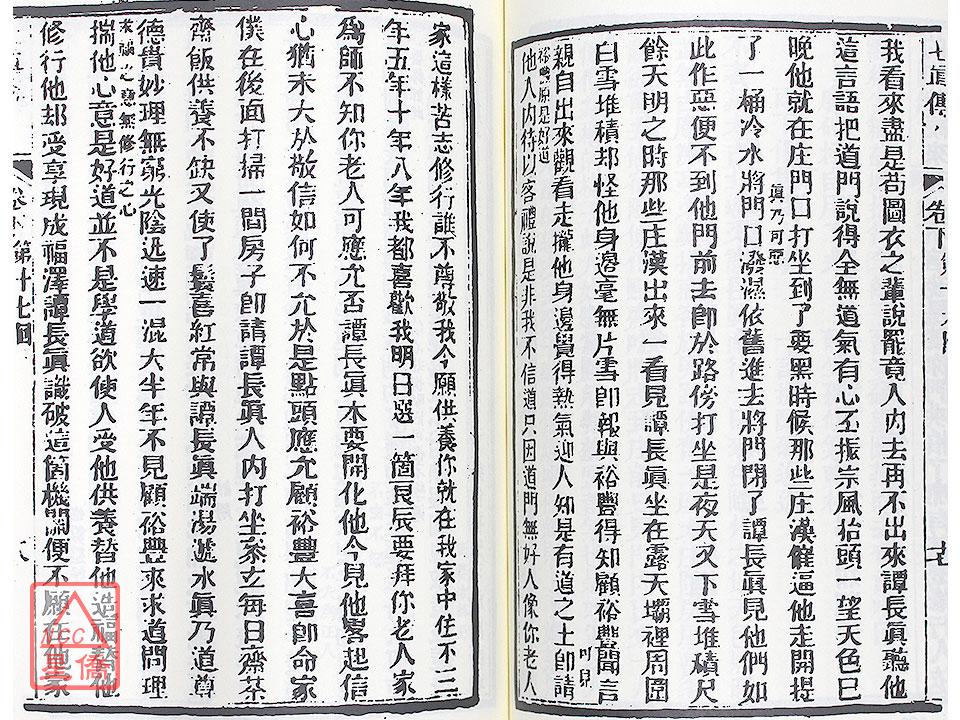 七眞傳
卷下第十七回
我看來盡是苟圖衣之輩說罷竟入內去再不出來譚長眞聽他
這言語把道門說得全無道氣有心丕振宗風抬頭一望天色已
晚他就在庄門口打坐到了要黑時候那些庄漢催逼他走開提
了一桶冷水將門口潑濕依舊進去將門閉了譚長眞見他們如
眞乃可惡
此作惡便不到他門前去卽於路傍打坐是夜天又下雪堆積尺
餘天明之時那些庄漢出來一看見譚長眞坐在露天壩裡周圍
白雪堆積却怪他身邊毫無片雪卽報與裕豐得知顧裕豐聞言
親自出來觀看走攏他身邊覺得熱氣迎人知是有道之士卽請
裕豐原是好道
他入內待以客禮說是非我不信道只因道門無好人像你老人
家這樣苦志修行誰不尊敬我今願供養你就在我家中住不三
年五年十年八年我都喜歡我明日選一箇良辰要拜你老人家
爲師不知你老人可應允否譚長眞本要開化他今見他畧起信
心猶未大於敬信如何不允於是點頭應允顧裕豐大喜卽命家
僕在後面打掃一間房子卽請譚長眞入內打坐茶立每日齋茶
齋飯供養不缺又使了鬟喜紅常與譚長眞端湯遞水眞乃道尊
德貴妙理無窮光陰迅速一混大半年不見顧裕豐來求道問理
求福之戀無修行之心
揣他心意是好道並不是學道欲使人受他供養替他造福替他
修行他却受享現成福澤譚長眞識破這箇機關便不願在他家
卷下第十七回
八